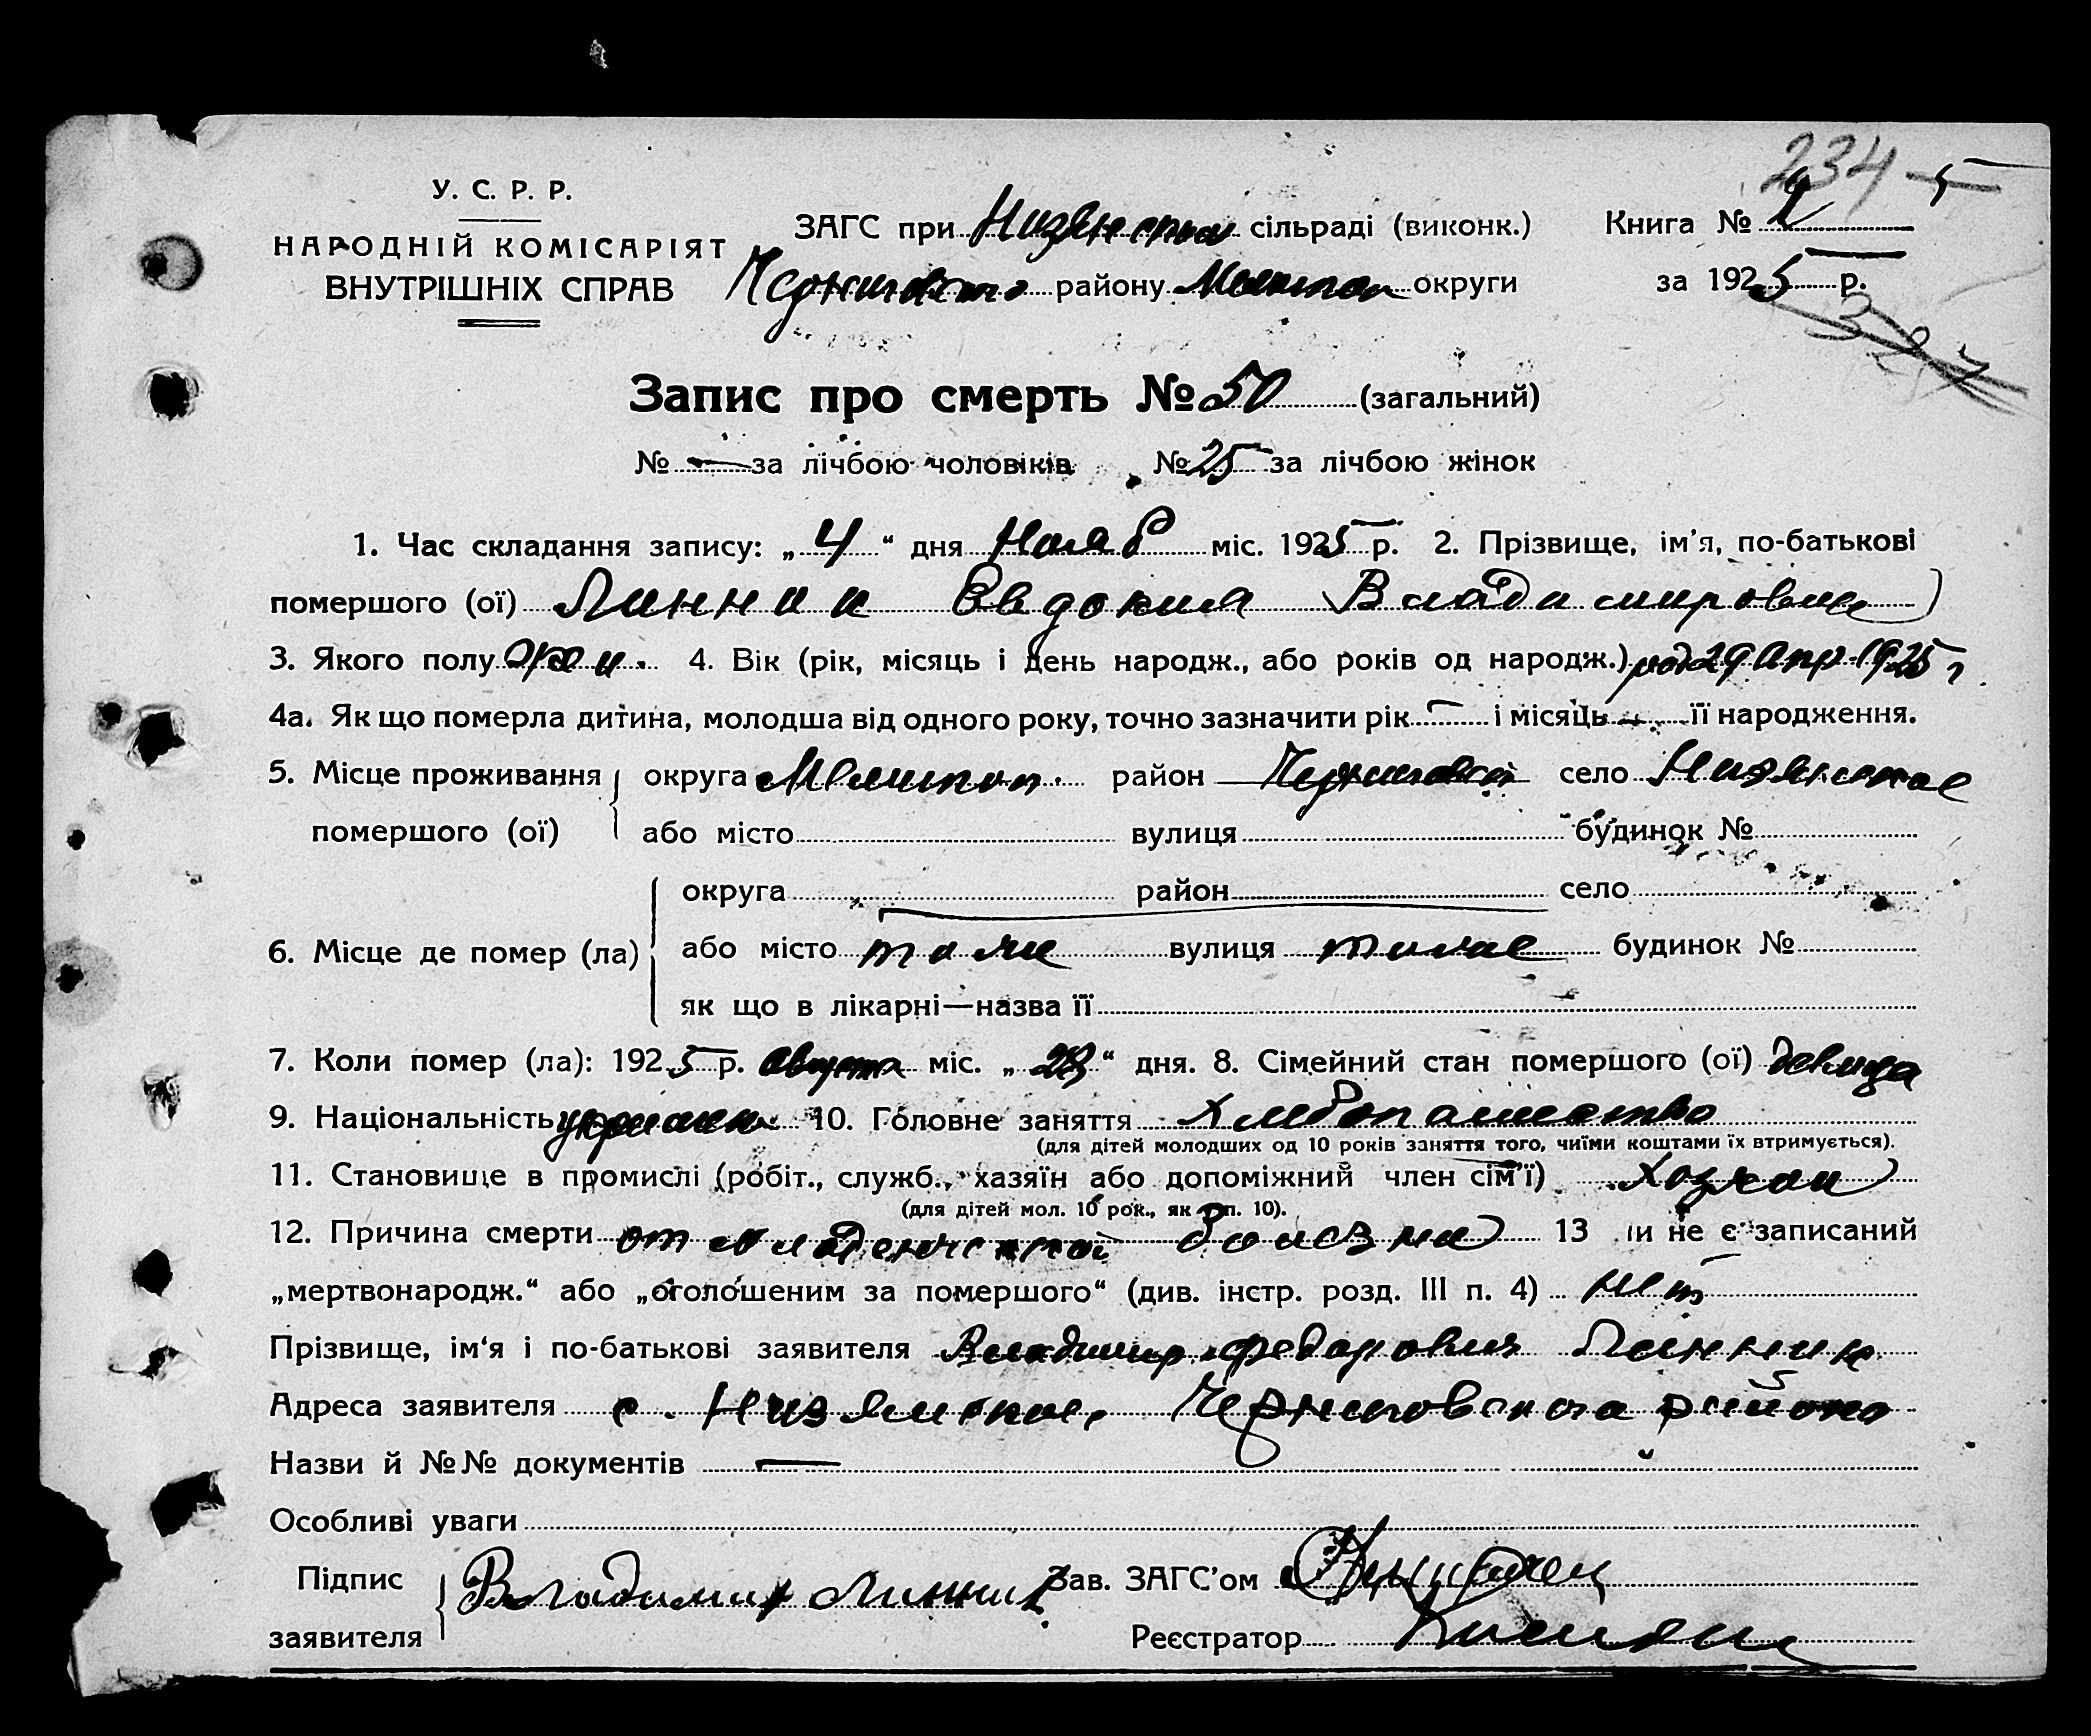 234
У. С. Р. Р.
НАРОДНІЙ КОМІСАРІЯТ
ВНУТРІШНІХ СПРАВ
ЗАГС при сільраді (виконк.)
району Мелитоп округи
Книга №
за 1925 р.
327
Запис про смерть № 50 (загальний)
№ — за лічбою чоловіків № 25 за лічбою жінок
1. Час складання запису: „4“ дня Нояб міс. 1925 р. 2. Прізвище, ім’я, по-батькові
помершого (ої) Линник Евдокия Владимировна
3. Якого полу жен. 4. Вік (рік, місяць і день народж., або років од народж.) род 29 Апр 1925 г
4а. Як що померла дитина, молодша від одного року, точно зазначити рік — і місяць — її народження.
5. Місце проживання округа Мелитоп. район Черниговский село Низянское
помершого (ої) або місто вулиця будинок №
округа район село
6. Місце де помер (ла) або місто там вулиця будинок №
як що в лікарні—назва її
7. Коли помер (ла): 1925 р. Августа міс. „28“ дня. 8. Сімейний стан помершого (ої) девица
9. Національність 10. Головне заняття Хлебопашество
(для дітей молодших од 10 років заняття того, чиїми коштами їх втримується).
11. Становище в промислі (робіт., служб., хазяїн або допоміжний член сім’ї) Хозяин
(для дітей мол. 10 рок., як п. 10).
12. Причина смерти от младенческой болезни 13 и не є записаний
„мертвонародж.“ або „оголошеним за помершого“ (див. інстр. розд. III п. 4) нет
Прізвище, ім‘я і по-батькові заявителя Владимир Федорович Линник
Адреса заявителя с. Низянское Черниговского района
Назви й №№ документів —
Особливі уваги
Підпис
заявителя Владимир Линник
Зав. ЗАГС’ом
Реєстратор